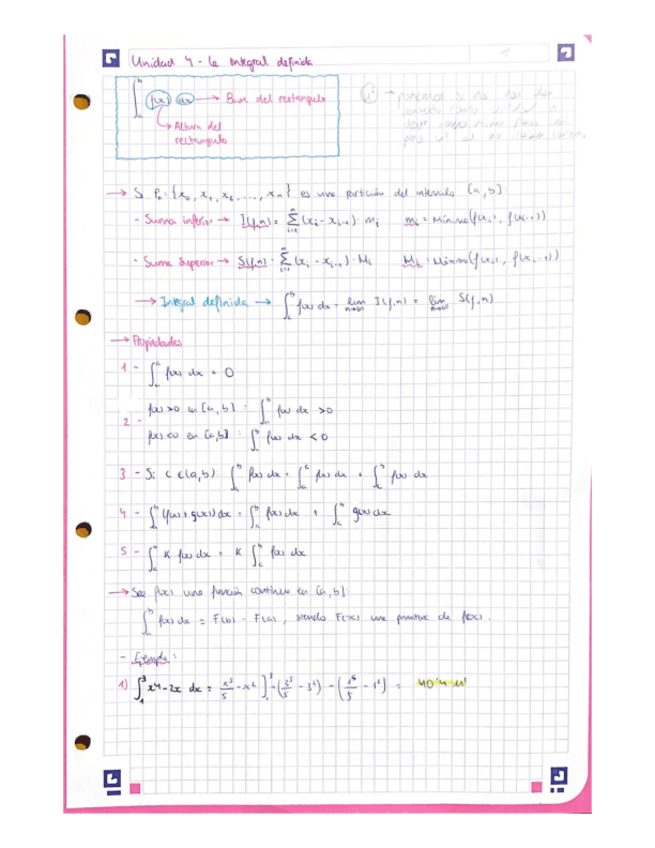 Unidad 4 - La integral definida
1
∫ₐᵇ f(x) dx → Base del rectangulo
→ Altura del
rectangulo
u² → ponemos si no nos dan
→ Si Pₙ: {x₀, x₁, x₂, ..., xₙ} es una partición del intervalo [a, b]:
- Suma inferior → I(f,n) = Σᵢ₌₁ⁿ (xᵢ - xᵢ₋₁) · mᵢ mᵢ = Mínimo(f(xᵢ), f(xᵢ₋₁))
- Suma Superior → S(f,n) = Σᵢ₌₁ⁿ (xᵢ - xᵢ₋₁) · Mᵢ Mᵢ = (f(xᵢ), f(xᵢ₋₁))
→ Integral definida → ∫ₐᵇ f(x) dx = lim n→∞ I(f,n) = lim n→∞ S(f,n)
→ Propiedades
1 - ∫ₐᵃ f(x) dx = 0
2 - f(x) > 0 en [a, b] : ∫ₐᵇ f(x) dx > 0
f(x) < 0 en [a, b] : ∫ₐᵇ f(x) dx < 0
3 - Si C ∈ (a, b): ∫ₐᵇ f(x) dx = ∫ₐᶜ f(x) dx + ∫꜀ᵇ f(x) dx
4 - ∫ₐᵇ (f(x) + g(x)) dx = ∫ₐᵇ f(x) dx + ∫ₐᵇ g(x) dx
5 - ∫ₐᵇ K f(x) dx = K ∫ₐᵇ f(x) dx
→ Sea f(x) una función continua en [a, b]
∫ₐᵇ f(x) dx = F(b) - F(a), siendo F(x) una primitiva de f(x).
- Ejemplo:
1) ∫₁³ x⁴ - 2x dx = x⁵/5 - x² ]₁³ = (3⁵/5 - 3²) - (1⁵/5 - 1²) = 40'4 u²